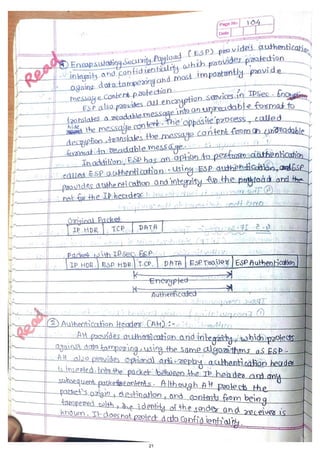 Page No. 104
Date
Read
① Encapsulating Security Payload (ESP) provides authentication,
integrity and confidentiality which provides protection
against data tampering and most importantly provide
message content protection.
ESP also provides all encryption services in IPSec.
translates a readable message into an unreadable format to
hide the message content. The opposite process, called
decryption, translates the message content from an unreadable
format to readable message.
In addition, ESP has an option to perform authentication
called ESP authentication. Using ESP authentication, ESP
provides authentication and integrity for the payload and
not for the IP header.
Original Packet
IP HDR TCP DATA
Packet with IPSec ESP
IP HDR ESP HDR TCP DATA ESP Trailer ESP Authentication
Encrypted
Authenticated
Read
② Authentication Header (AH) :-
AH provides authentication and integrity, which protects
against data tampering, using the same algorithms as ESP.
AH also provides optional anti-replay authentication header
is inserted into the packet between the IP header and any
subsequent packet contents. Although AH protects the
packet's origin, destination, and contents from being
tampered with, the identity of the sender and receiver is
known. It does not protect data confidentiality.
21